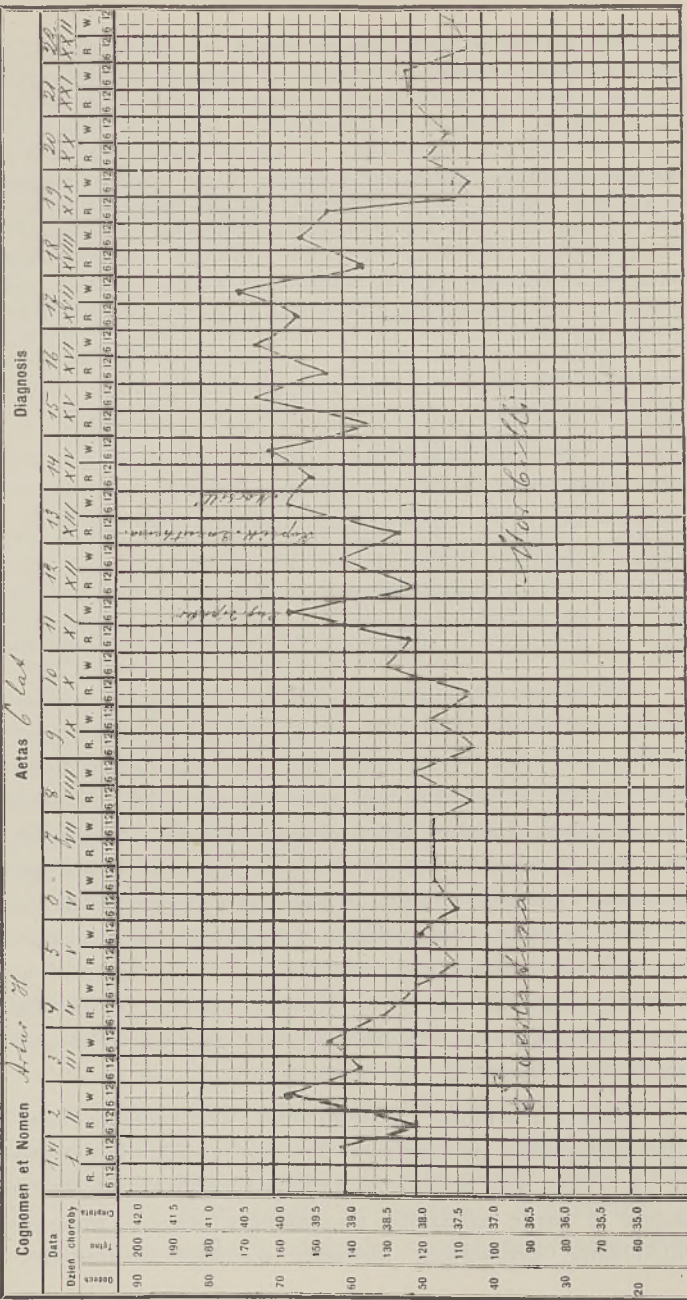 Cognomen et Nomen Artur H Aetas 6 lat Diagnosis
Data 1.XI 2 3 4 5 6 7 8 9 10 11 12 13 14 15 16 17 18 19 20 21 22
Dzień choroby I II III IV V VI VII VIII IX X XI XII XIII XIV XV XVI XVII XVIII XIX XX XXI XXII
R. W R W R W R W R. W R W R W R W R. W. R. W R W. R W R. W. R W. R W R W R W R W R W R W R W R W
6 12 6 12 6 12 6 12 6 12 6 12 6 12 6 12 6 12 6 12 6 12 6 12 6 12 6 12 6 12 6 12 6 12 6 12 6 12 6 12 6 12 6 12 6 12 6 12 6 12 6 12 6 12 6 12 6 12 6 12 6 12 6 12 6 12 6 12 6 12 6 12 6 12 6 12 6 12 6 12 6 12 6 12 6 12 6 12
Oddech Tętno Ciepłota
90 200 42.0
190 41.5
80 180 41.0
170 40.5
70 160 40.0
150 39.5
60 140 39.0
130 38.5
50 120 38.0
110 37.5
40 100 37.0
90 36.5
30 80 36.0
70 35.5
20 60 35.0
Scarlatina
Morbilli